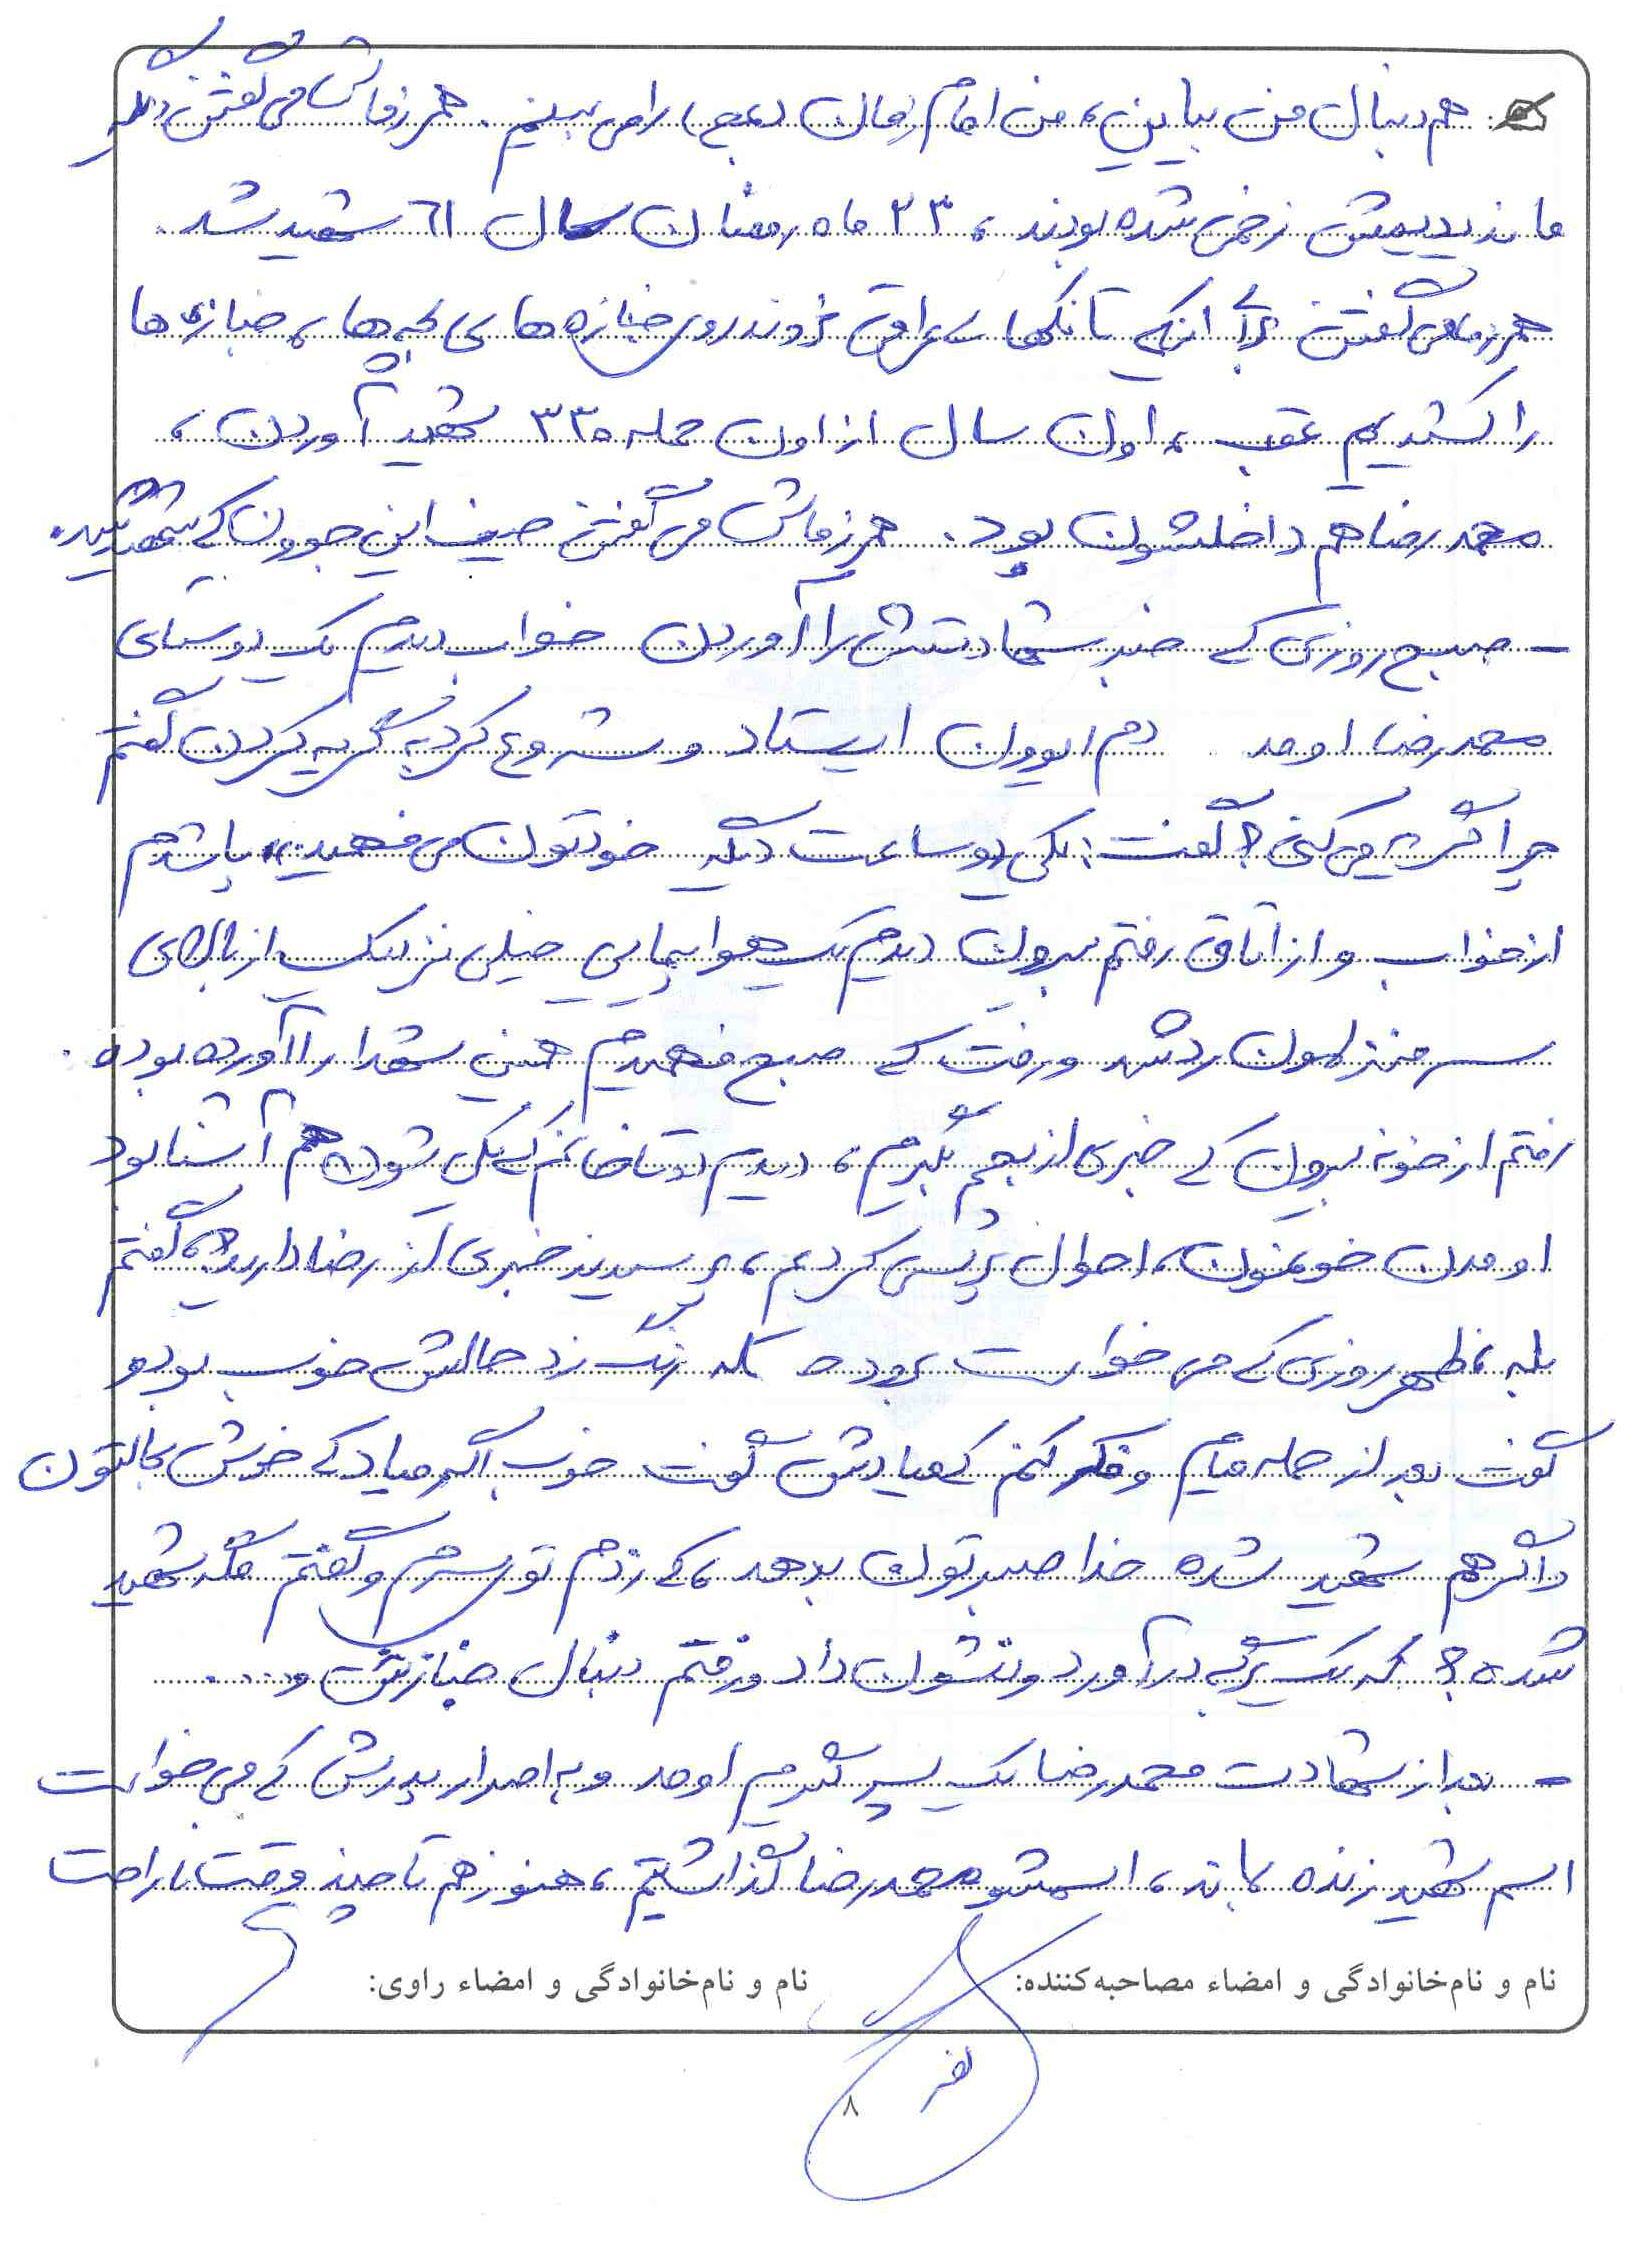 هم دنبال من بیاین، من امام زمان (عج) را می بینم. همرزماش می گفتن دیگه
ما ندیدیمش زخمی شده بودند، ۲۳ ماه رمضان سال ۶۱ شهید شد.
همرزما می گفتن برای اینکه تانکهای عراقی نروند روی جنازه های بچه ها، جنازه ها
را کشیدیم عقب، اون سال از اون حمله ۳۳۰ شهید آوردن،
محمدرضا هم داخلشون بود. همرزماش می گفتن حیف این جوون که شهید شد.
- صبح روزی که خبر شهادتش را آوردن خواب دیدم یک دوستای
محمدرضا اومد دم ایوون ایستاد و شروع کرد به گریه کردن گفتم
چرا گریه می کنی؟ گفت: یکی دو ساعت دیگه خودتون می فهمید، پا شدم
از خواب و از اتاق رفتم بیرون دیدم یک هواپیمایی خیلی نزدیک از بالای
سر منزلمون رد شد و رفت که صبح فهمیدم همین شهدا را آورده بوده.
رفتم از خونه بیرون که خبری از بچم بگیرم، دیدم دو تا خانم که یکی شون هم آشنا بود
اومدن خونمون، احوال پرسی کردیم، پرسیدند خبری از رضا دارید؟ گفتم
بله، ظهر روزی که می خواست بره حمله زنگ زد حالش خوب بود و
گفت بعد از حمله میام و فکر کنم که میادش گفت خوب اگر میاد که خوش بحالتون
و اگر هم شهید شده خدا صبرتون بدهد، که زدم توی سرم و گفتم مگه شهید
شده؟ که یک برگه درآورد و نشون داد و رفتم دنبال جنازش و....
- بعد از شهادت محمدرضا یک پسر گیرم اومد و به اصرار پدرش که می خواست
اسم شهید زنده بماند، اسمشو محمدرضا گذاشتیم، هنوز هم تا چند وقت ناراحت
نام و نام‌خانوادگی و امضاء مصاحبه‌کننده:
نام و نام‌خانوادگی و امضاء راوی:
۸